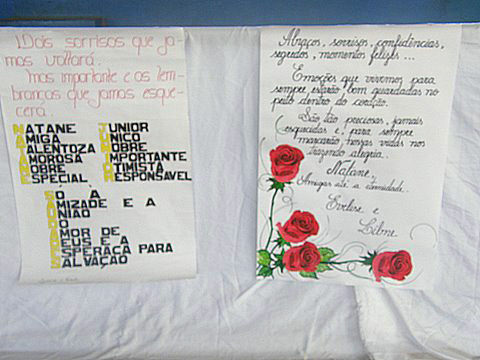 Dois sorrisos que ja-
mas voltará.
Mas importante é as lem-
branças que jamais esque-
cerá..
NATANE JUNIOR
AMIGA UNICO
TALENTOZA NOBRE
AMOROSA IMPORTANTE
NOBRE OTIMISTA
ESPECIAL RESPONSAVEL
SÓ A
AMIZADE E A
UNIÃO
DO
AMOR DE
DEUS E A
ESPERAÇA PARA
SALVAÇÃO
Abraços, sorrisos, confidências,
segredos, momentos felizes...
Emoções que vivemos para
sempre estarão bem guardadas no
peito dentro do coração.
São tão preciosas, jamais
esquecidas e para sempre
marcarão nossas vidas nos
trazendo alegria.
Natane,
Amigas até a eternidade..
Evelise e